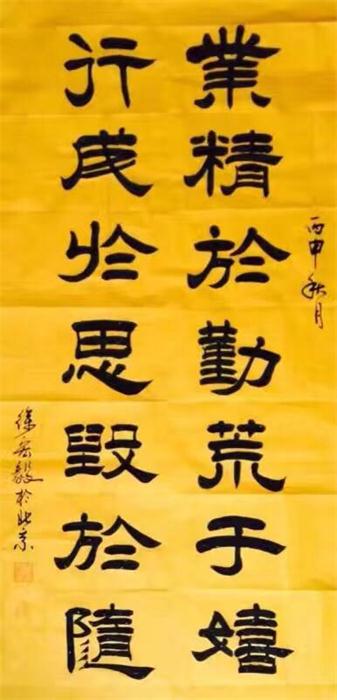 丙申秋月
業精於勤荒于嬉
行成於思毀於隨
徐毅於北京